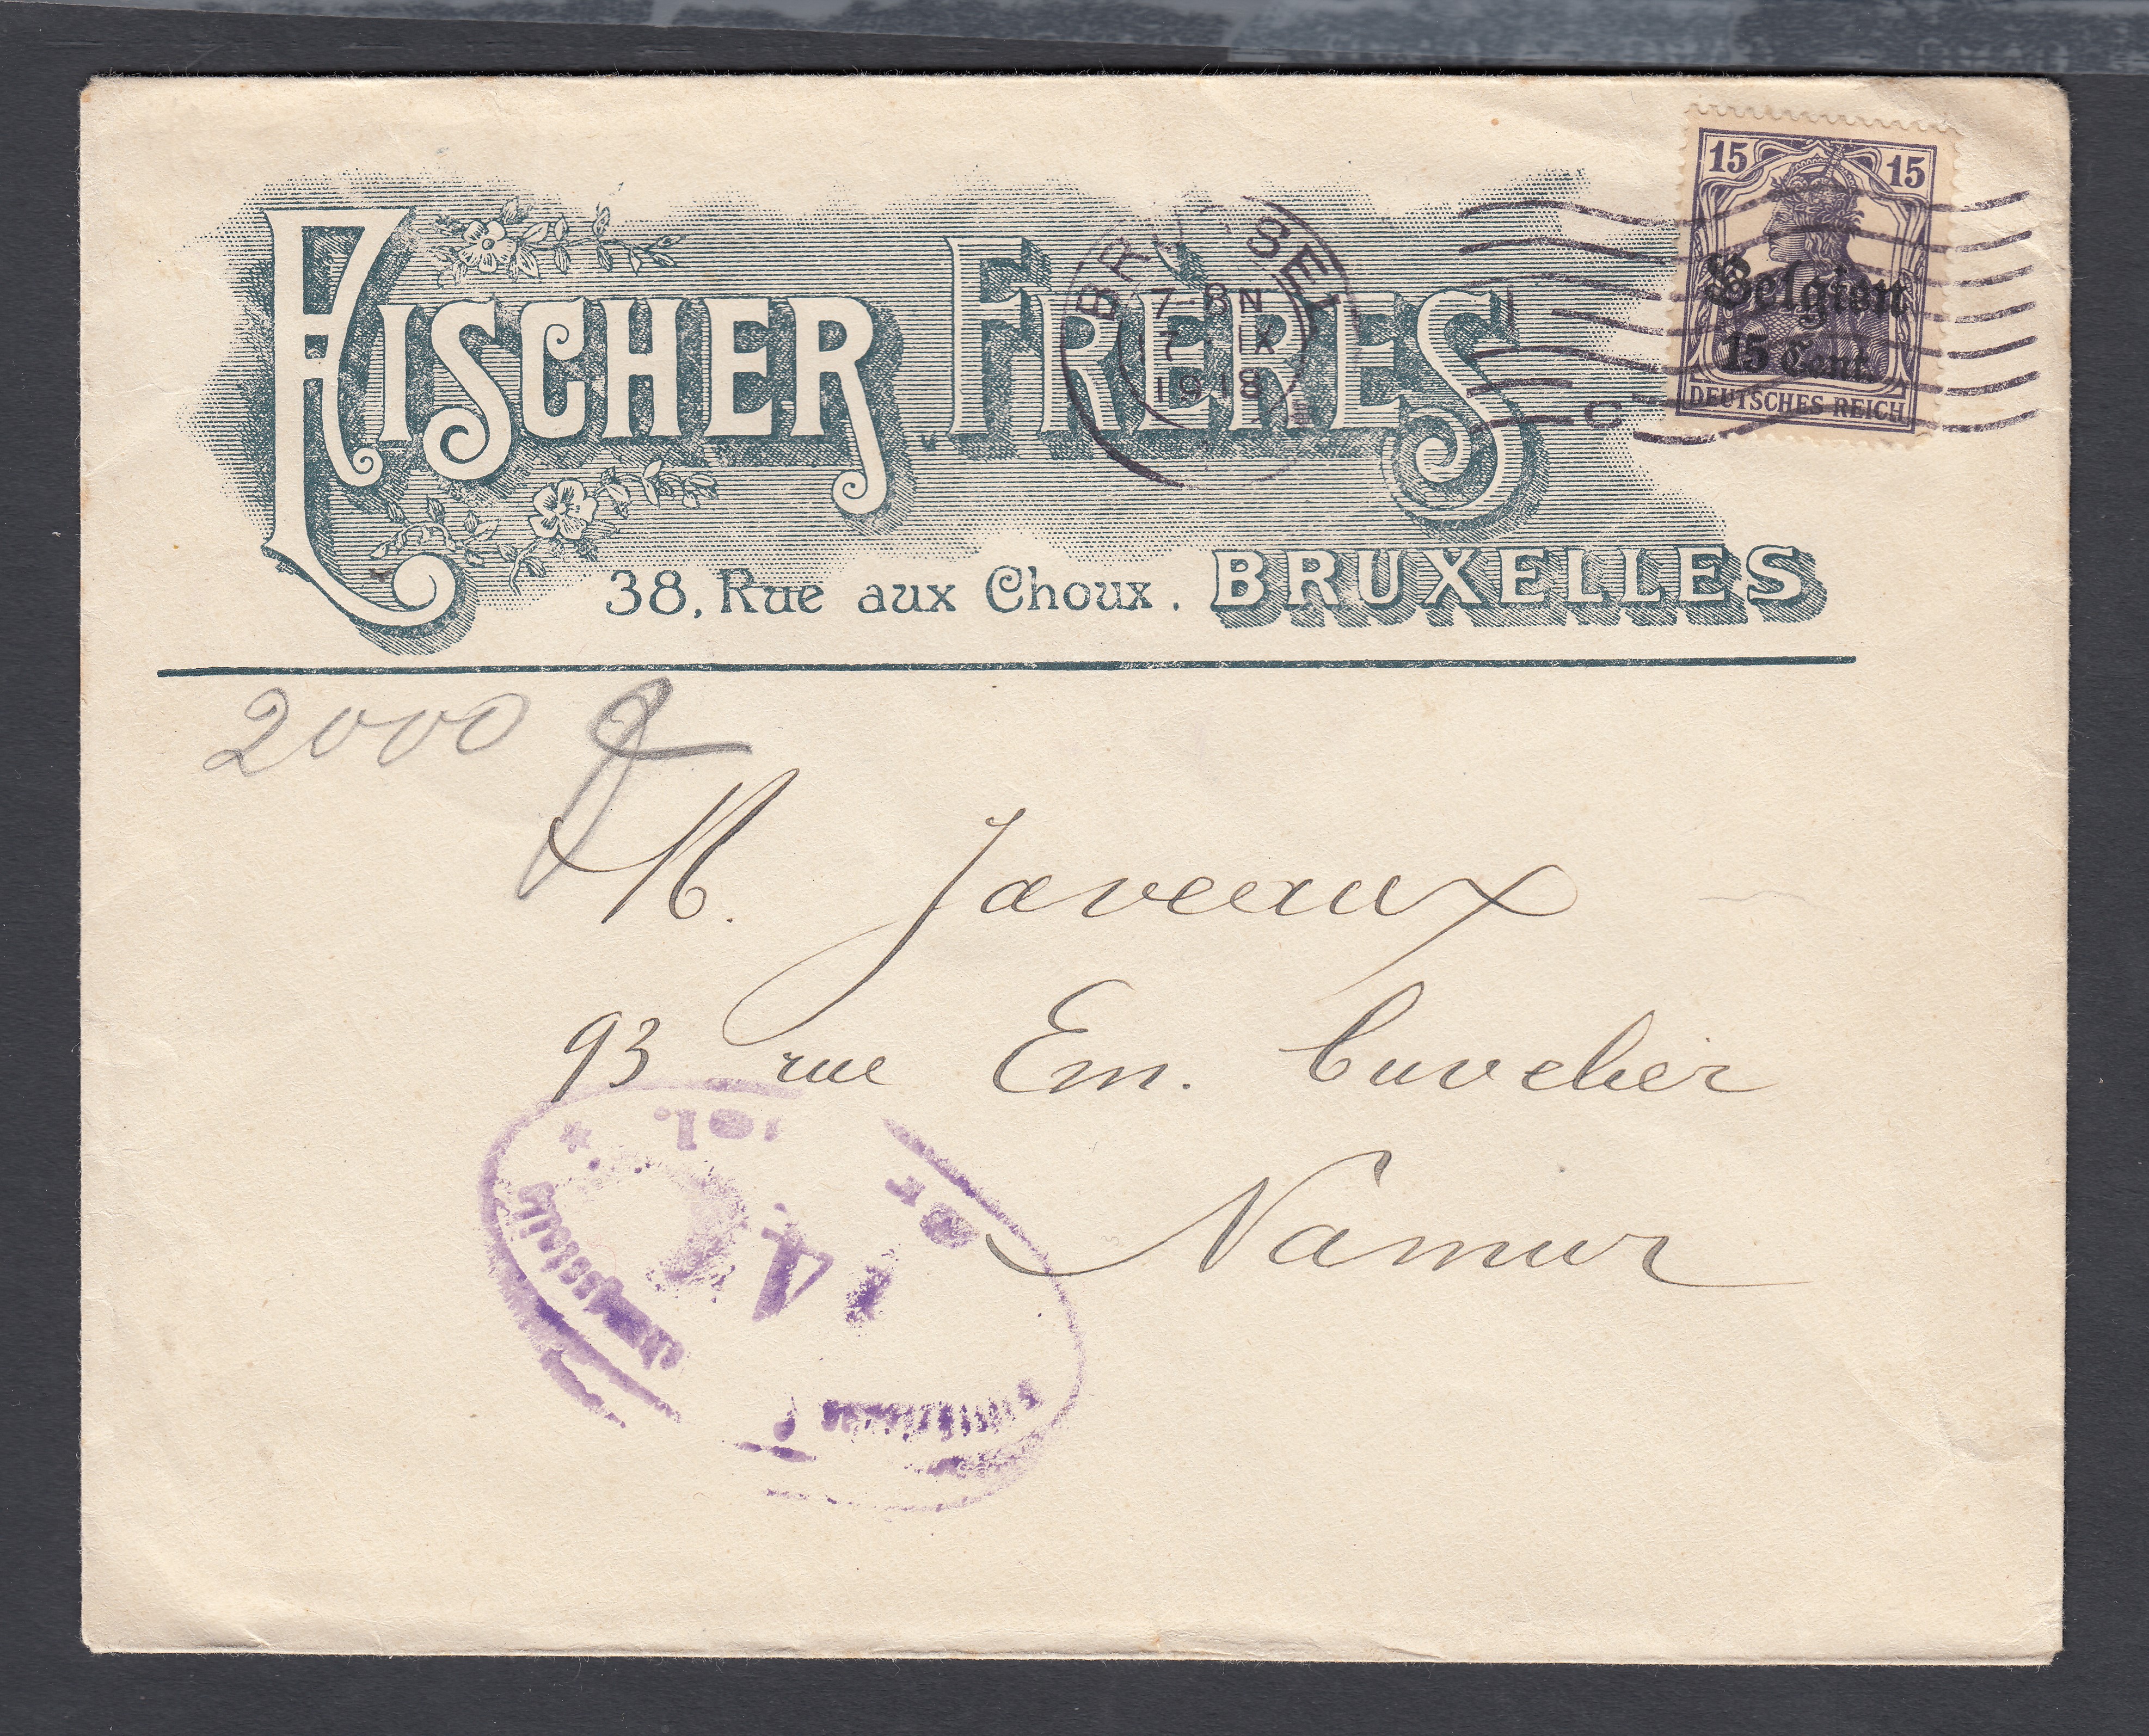 FISCHER FRÈRES
38, Rue aux Choux. BRUXELLES
7-8 N
1918
15 15
Belgien
15 Cent.
DEUTSCHES REICH
2000
M. Javeaux
93 rue Em. Cuvelier
Namur